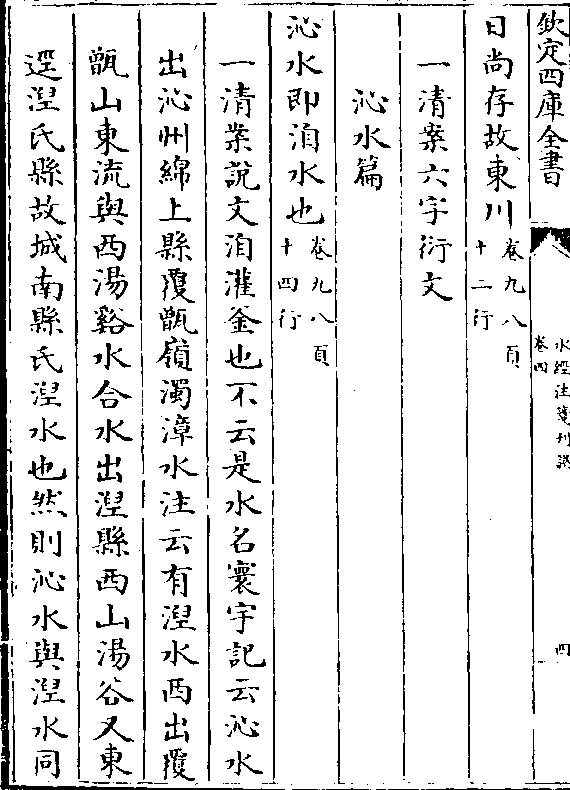 欽定四庫全書
水經注箋刊誤
卷四
四
日尚存故東川卷九八頁
十二行
一清案六字衍文
沁水篇
沁水即洎水也卷九八頁
十四行
一清案說文洎灌釜也不云是水名寰宇記云沁水
出沁州綿上縣覆甑嶺濁漳水注云有湼水西出覆
甑山東流與西湯谿水合水出湼縣西山湯谷又東
逕湼氏縣故城南縣氏湼水也然則沁水與湼水同